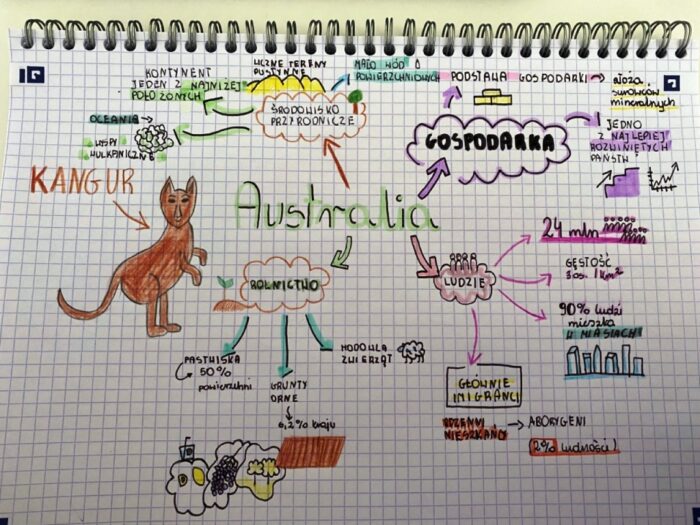 KONTYNENT
JEDEN Z NAJNIŻEJ
POŁOŻONYCH
LICZNE TERENY
PUSTYNNE
MAŁO WÓD
POWIERZCHNIOWYCH
PODSTAWA GOSPODARKI →
złoża
surowców
mineralnych
OCEANIA →
WYSPY
WULKANICZNE
ŚRODOWISKO
PRZYRODNICZE
GOSPODARKA
JEDNO
Z NAJLEPIEJ
ROZWINIĘTYCH
PAŃSTW
KANGUR
Australia
24 mln
GĘSTOŚĆ
3 os. / km²
LUDZIE
90% ludzi
mieszka
W MIASTACH
ROLNICTWO
PASTWISKA
50%
powierzchni
GRUNTY
ORNE
6,2% kraju
HODOWLA
ZWIERZĄT
GŁÓWNIE
IMIGRANCI
RDZENNI
MIESZKAŃCY
→ ABORYGENI
2% ludności!